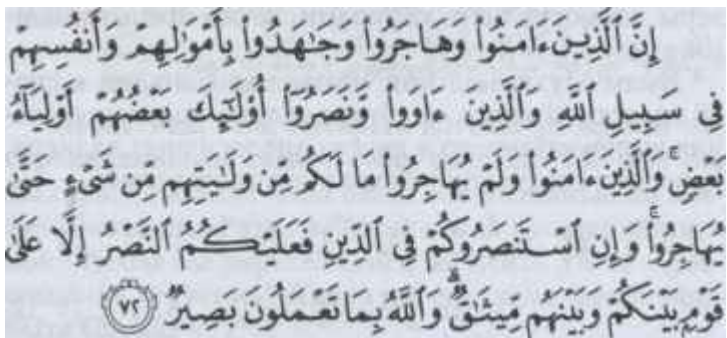 إِنَّ ٱلَّذِينَ ءَامَنُوا۟ وَهَاجَرُوا۟ وَجَٰهَدُوا۟ بِأَمْوَٰلِهِمْ وَأَنفُسِهِمْ
فِى سَبِيلِ ٱللَّهِ وَٱلَّذِينَ ءَاوَوا۟ وَّنَصَرُوٓا۟ أُو۟لَٰٓئِكَ بَعْضُهُمْ أَوْلِيَآءُ
بَعْضٍۚ وَٱلَّذِينَ ءَامَنُوا۟ وَلَمْ يُهَاجِرُوا۟ مَا لَكُم مِّن وَلَٰيَتِهِم مِّن شَىْءٍ حَتَّىٰ
يُهَاجِرُوا۟ۚ وَإِنِ ٱسْتَنصَرُوكُمْ فِى ٱلدِّينِ فَعَلَيْكُمُ ٱلنَّصْرُ إِلَّا عَلَىٰ
قَوْمٍۭ بَيْنَكُمْ وَبَيْنَهُم مِّيثَٰقٌۗ وَٱللَّهُ بِمَا تَعْمَلُونَ بَصِيرٌ ٧٢